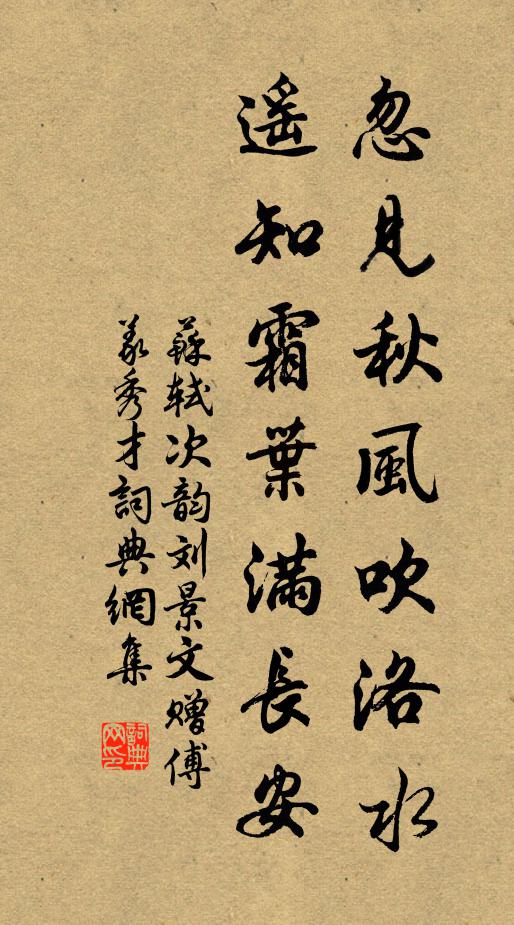 忽見秋風吹洛水
遥知霜葉滿長安
蘇軾次韵刘景文赠傅
羲秀才詞典網集
詞典
网印